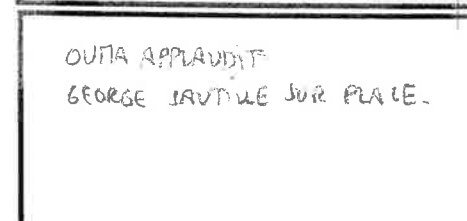 OUMA APPLAUDIT
GEORGE SAUTILLE SUR PLACE.